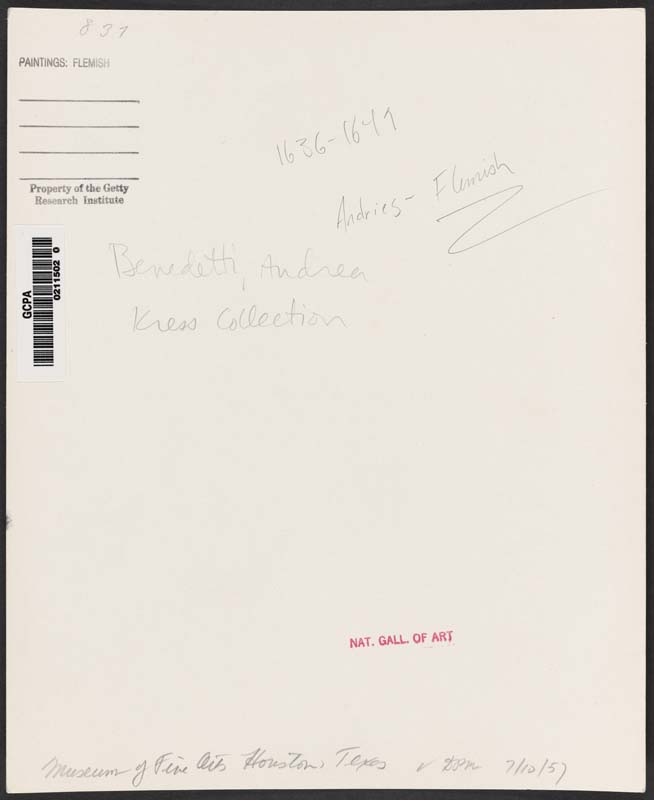 837
PAINTINGS: FLEMISH
Property of the Getty
Research Institute
GCPA
0211502 0
1636-1647
Andries- Flemish
Benedetti, Andrea
Kress Collection
NAT. GALL. OF ART
Museum of Fine Arts Houston, Texas 7/10/57